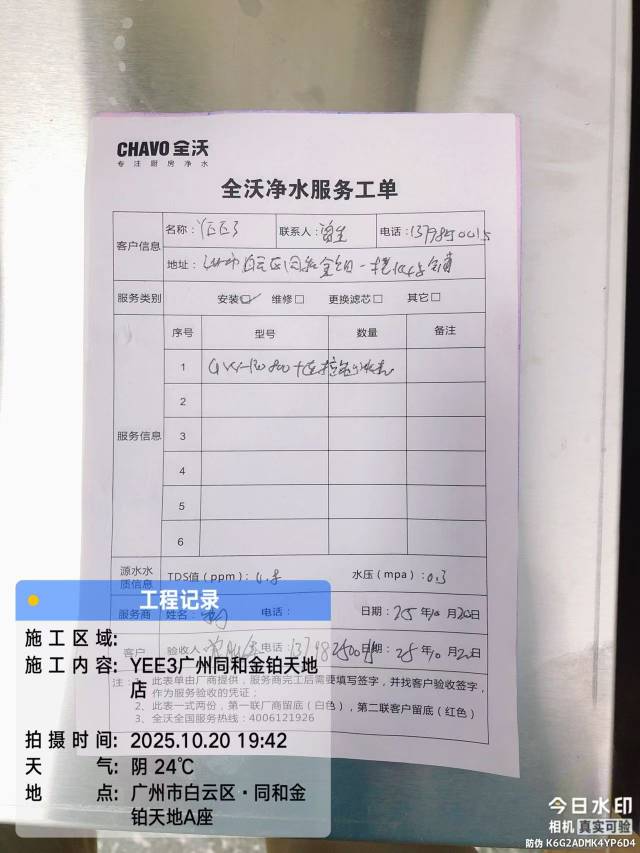 CHAVO 全沃
专注厨房净水
全沃净水服务工单
客户信息 名称：YEE3 联系人：曾生 电话：
地址：白云区同和金铂
服务类别 安装☑ 维修□ 更换滤芯□ 其它□
服务信息 序号 型号 数量 备注
1
2
3
4
5
6
源水水质信息 TDS值（ppm）： 水压（mpa）：0.3
服务商 姓名： 电话： 日期：25年10月20日
客户 验收人： 日期：25年10月20日
注：1、此表单由厂商提供，服务商完工后需要填写签字，并找客户验收签字，
作为服务验收的凭证；
2、此表一式两份，第一联厂商留底（白色），第二联客户留底（红色）
3、全沃全国服务热线：4006121926
工程记录
施工区域：
施工内容：YEE3广州同和金铂天地
店
拍摄时间：2025.10.20 19:42
天气：阴 24℃
地点：广州市白云区·同和金
铂天地A座
今日水印
相机 真实可验
防伪 K6G2ADMK4YP6D4